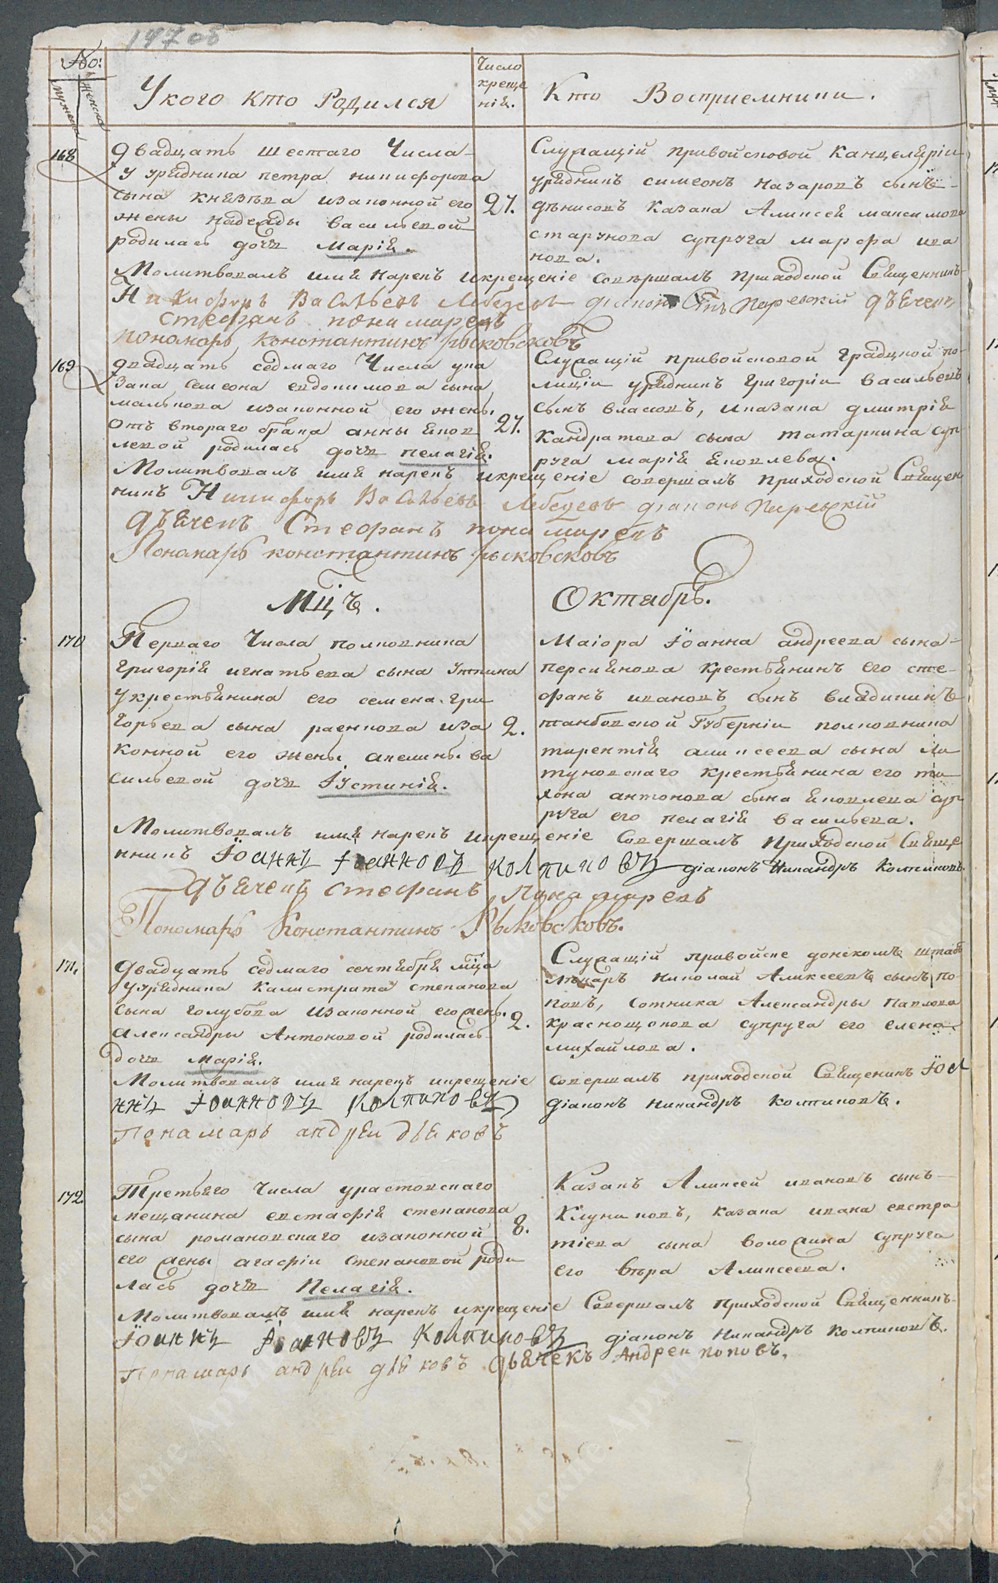 147 об
No:
мужеска
женска
У кого кто Родился
Число
креще
нія.
Кто Восприемники.
168
Двадцать шестаго Числа
У урядника петра никифорова
сына князева изаконной его
жены надежды васильевой
родилась дочь Марія.
27.
Служащій привойсковой канцеляріи
урядникъ симеонъ назаровъ сынъ
денисовъ казака Алексея максимова
старикова супруга марфа ива
нова.
Молитвовалъ имя нарекъ икрещеніе совершалъ приходской Священникъ
Никифоръ Васильевъ Лебедевъ діаконъ Петръ Паревскій дьячекъ
Стефанъ понамаревъ
пономарь константинъ рыковсковъ
169
двадцать седмаго Числа ука
зака симеона евдокимова сына
малькова изаконной его жены
отъ втораго брака анны яков
левой родилась дочь пелагія.
27.
Служащій привойсковой градцкой по-
лиціи урядникъ григоріи васильевъ
сынъ власовъ, иказака дмитрія
кандратова сына татаркина суп
руга марія яковлева.
Молитвовалъ имя нарекъ икрещеніе совершалъ приходской Священ
никъ Никифоръ Васильевъ Лебедевъ діаконъ Паревскій
дьячекъ Стефанъ понамаревъ
Пономарь константинъ рыковсковъ
Мцъ.
Октябрь.
170
Перваго Числа полковника
григорія игнатьева сына Уткина
укрестьянина его семена гри
горьева сына раенкова иза
конной его жены акелины ва
сильевой дочь Іустинія.
2.
Маіора Іоанна андреева сына
персиянова крестьянинъ его сте-
фанъ ивановъ сынъ владикинъ
танбовской губерніи полковника
тирентія алексеева сына ла
туновскаго крестьянина его ти
хона антонова сына яковлева суп
руга его пелагія васильева.
Молитвовалъ имя нарекъ икрещеніе Совершалъ приходской Свяще
нникъ Іоаннъ Іоанновъ Колпиковъ діаконъ Никандръ Колпиковъ
дьячекъ стефанъ понамаревъ
Пономарь Константинъ Рыковсковъ.
171.
Двадцать седмаго сентября мца
Уурядника калистрата степанова
сына голубова изаконной его жены
александры Антоновой родилась
дочь Марія.
2.
Служащій привойске донскомъ штаб
лекарь николай Алексеевъ сынъ по-
повъ, сотника Александры Павлова
краснощокова супруга его елена
михайлова.
Молитвовалъ имя нарекъ икрещеніе совершалъ приходской Священикъ Іоа
ннъ Іоанновъ Колпиковъ діаконъ никандръ колпиковъ.
Понамарь андреи дьяковъ
172
Третьяго Числа уростовскаго
мещанина евстафія степанова
сына романовскаго изаконной
его жены агафіи степановой роди
лась дочь Пелагія.
8.
Казакъ Алексей ивановъ сынъ
Клунниковъ, казака ивана евстра
тіева сына волошина супруга
его въра Алексеева.
Молитвовалъ имя нарекъ икрещеніе Совершалъ приходской Священникъ
Іоаннъ Іоанновъ Колпиковъ діаконъ никандръ колпиковъ.
Понамарь андреи дьяковъ дьячекъ Андреи поповъ.